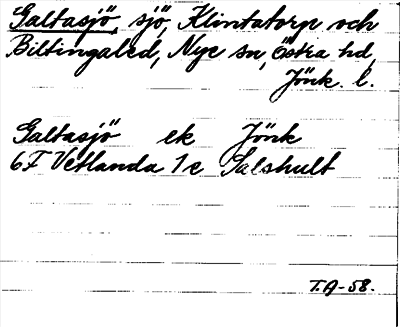 Galtasjö, sjö, Klintatorp och
Biltingaled, Nye sn, Östra hd,
Jönk. l.
Galtasjö ek Jönk
6F Vetlanda 1c Salshult
T.A-58.